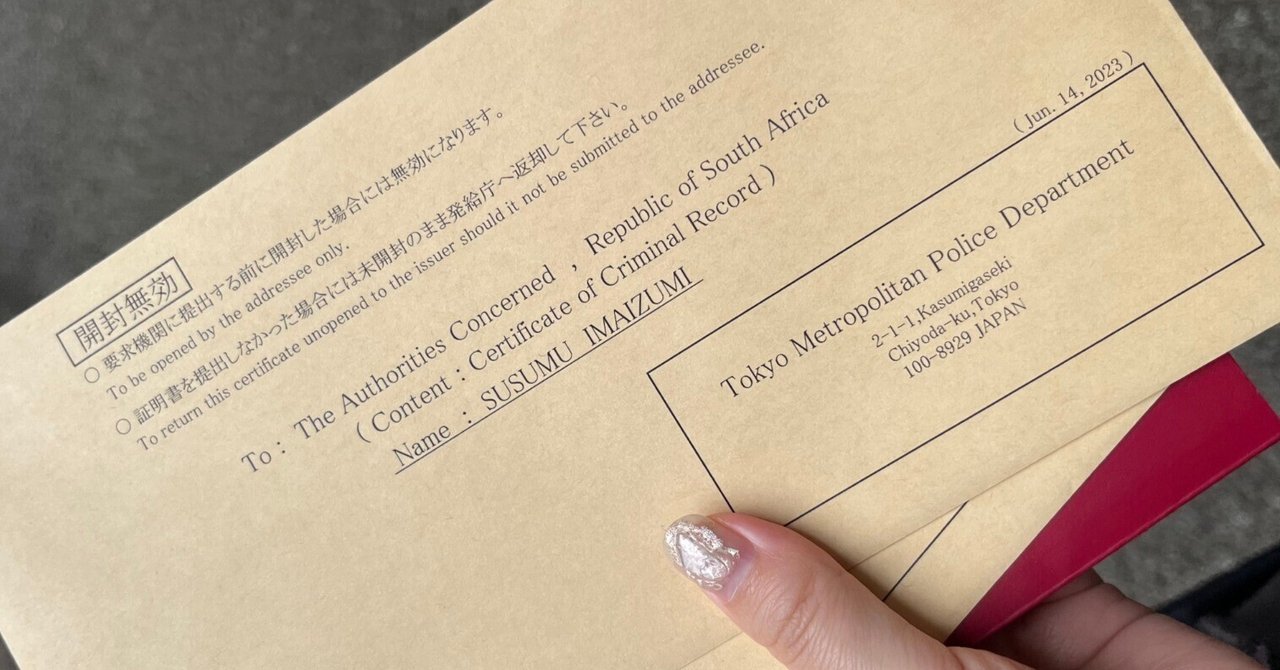 開封無効
○ 要求機関に提出する前に開封した場合には無効になります。
To be opened by the addressee only.
○ 証明書を提出しなかった場合には未開封のまま発給庁へ返却して下さい。
To return this certificate unopened to the issuer should it not be submitted to the addressee.
To : The Authorities Concerned , Republic of South Africa
( Content : Certificate of Criminal Record )
Name : SUSUMU IMAIZUMI
( Jun. 14, 2023 )
Tokyo Metropolitan Police Department
2-1-1,Kasumigaseki
Chiyoda-ku,Tokyo
100-8929 JAPAN